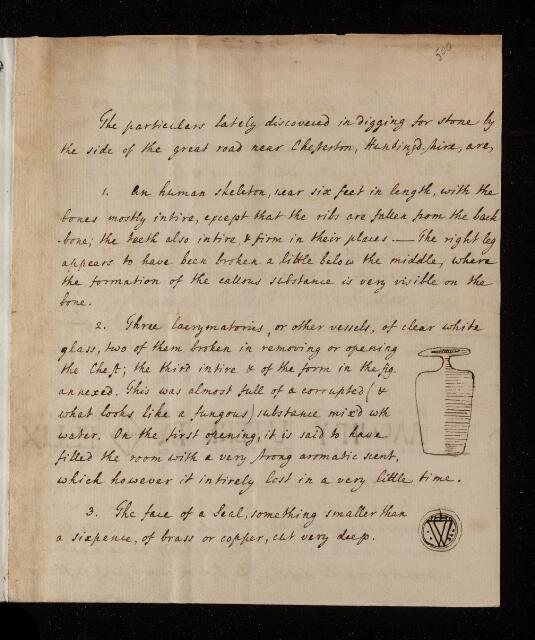 500
The particulars lately discovered in digging for stone by
the side of the great road near Chesterton, Huntingd.shire, are,
1. An human skeleton, near six feet in length, with the
bones mostly intire, except that the ribs are fallen from the back
-bone; the teeth also intire, & firm in their places. — The right leg
appears to have been broken a little below the middle, where
the formation of the callous substance is very visible on the
bone.
2. Three Lacrymatories, or other vessels, of clear white
glass, two of them broken in removing or opening
the Chest; the third intire & of the form in the fig.
annexed. This was almost full of a corrupted (&
what looks like a fungous) substance mixd wth
water. On the first opening, it is said to have
filled the room with a very strong aromatic scent,
which however it intirely lost in a very little time.
3. The face of a Seal, something smaller than
a sixpence, of brass or copper, cut very deep.